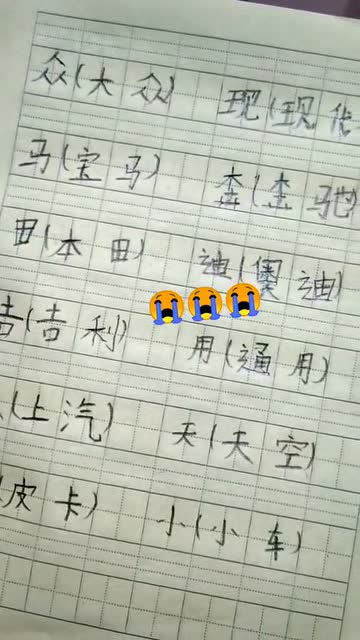 众(大众) 现(现代
马(宝马) 奔(奔驰)
田(本田) 迪(奥迪)
吉(吉利) 用(通用)
(上汽) 天(天空)
(皮卡) 小(小车)